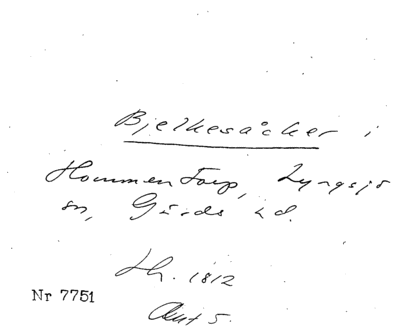 Bjelkesåcker i
Hommentorp, Lyngsjö
sn, Gärds hd.
Lh. 1812
Nr 7751
Akt 5.